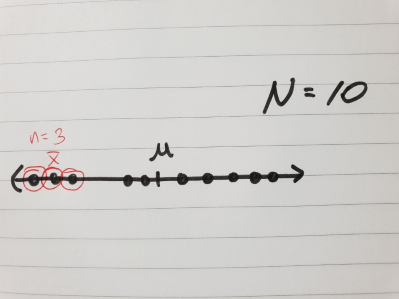 N = 10
n = 3
x̄
μ